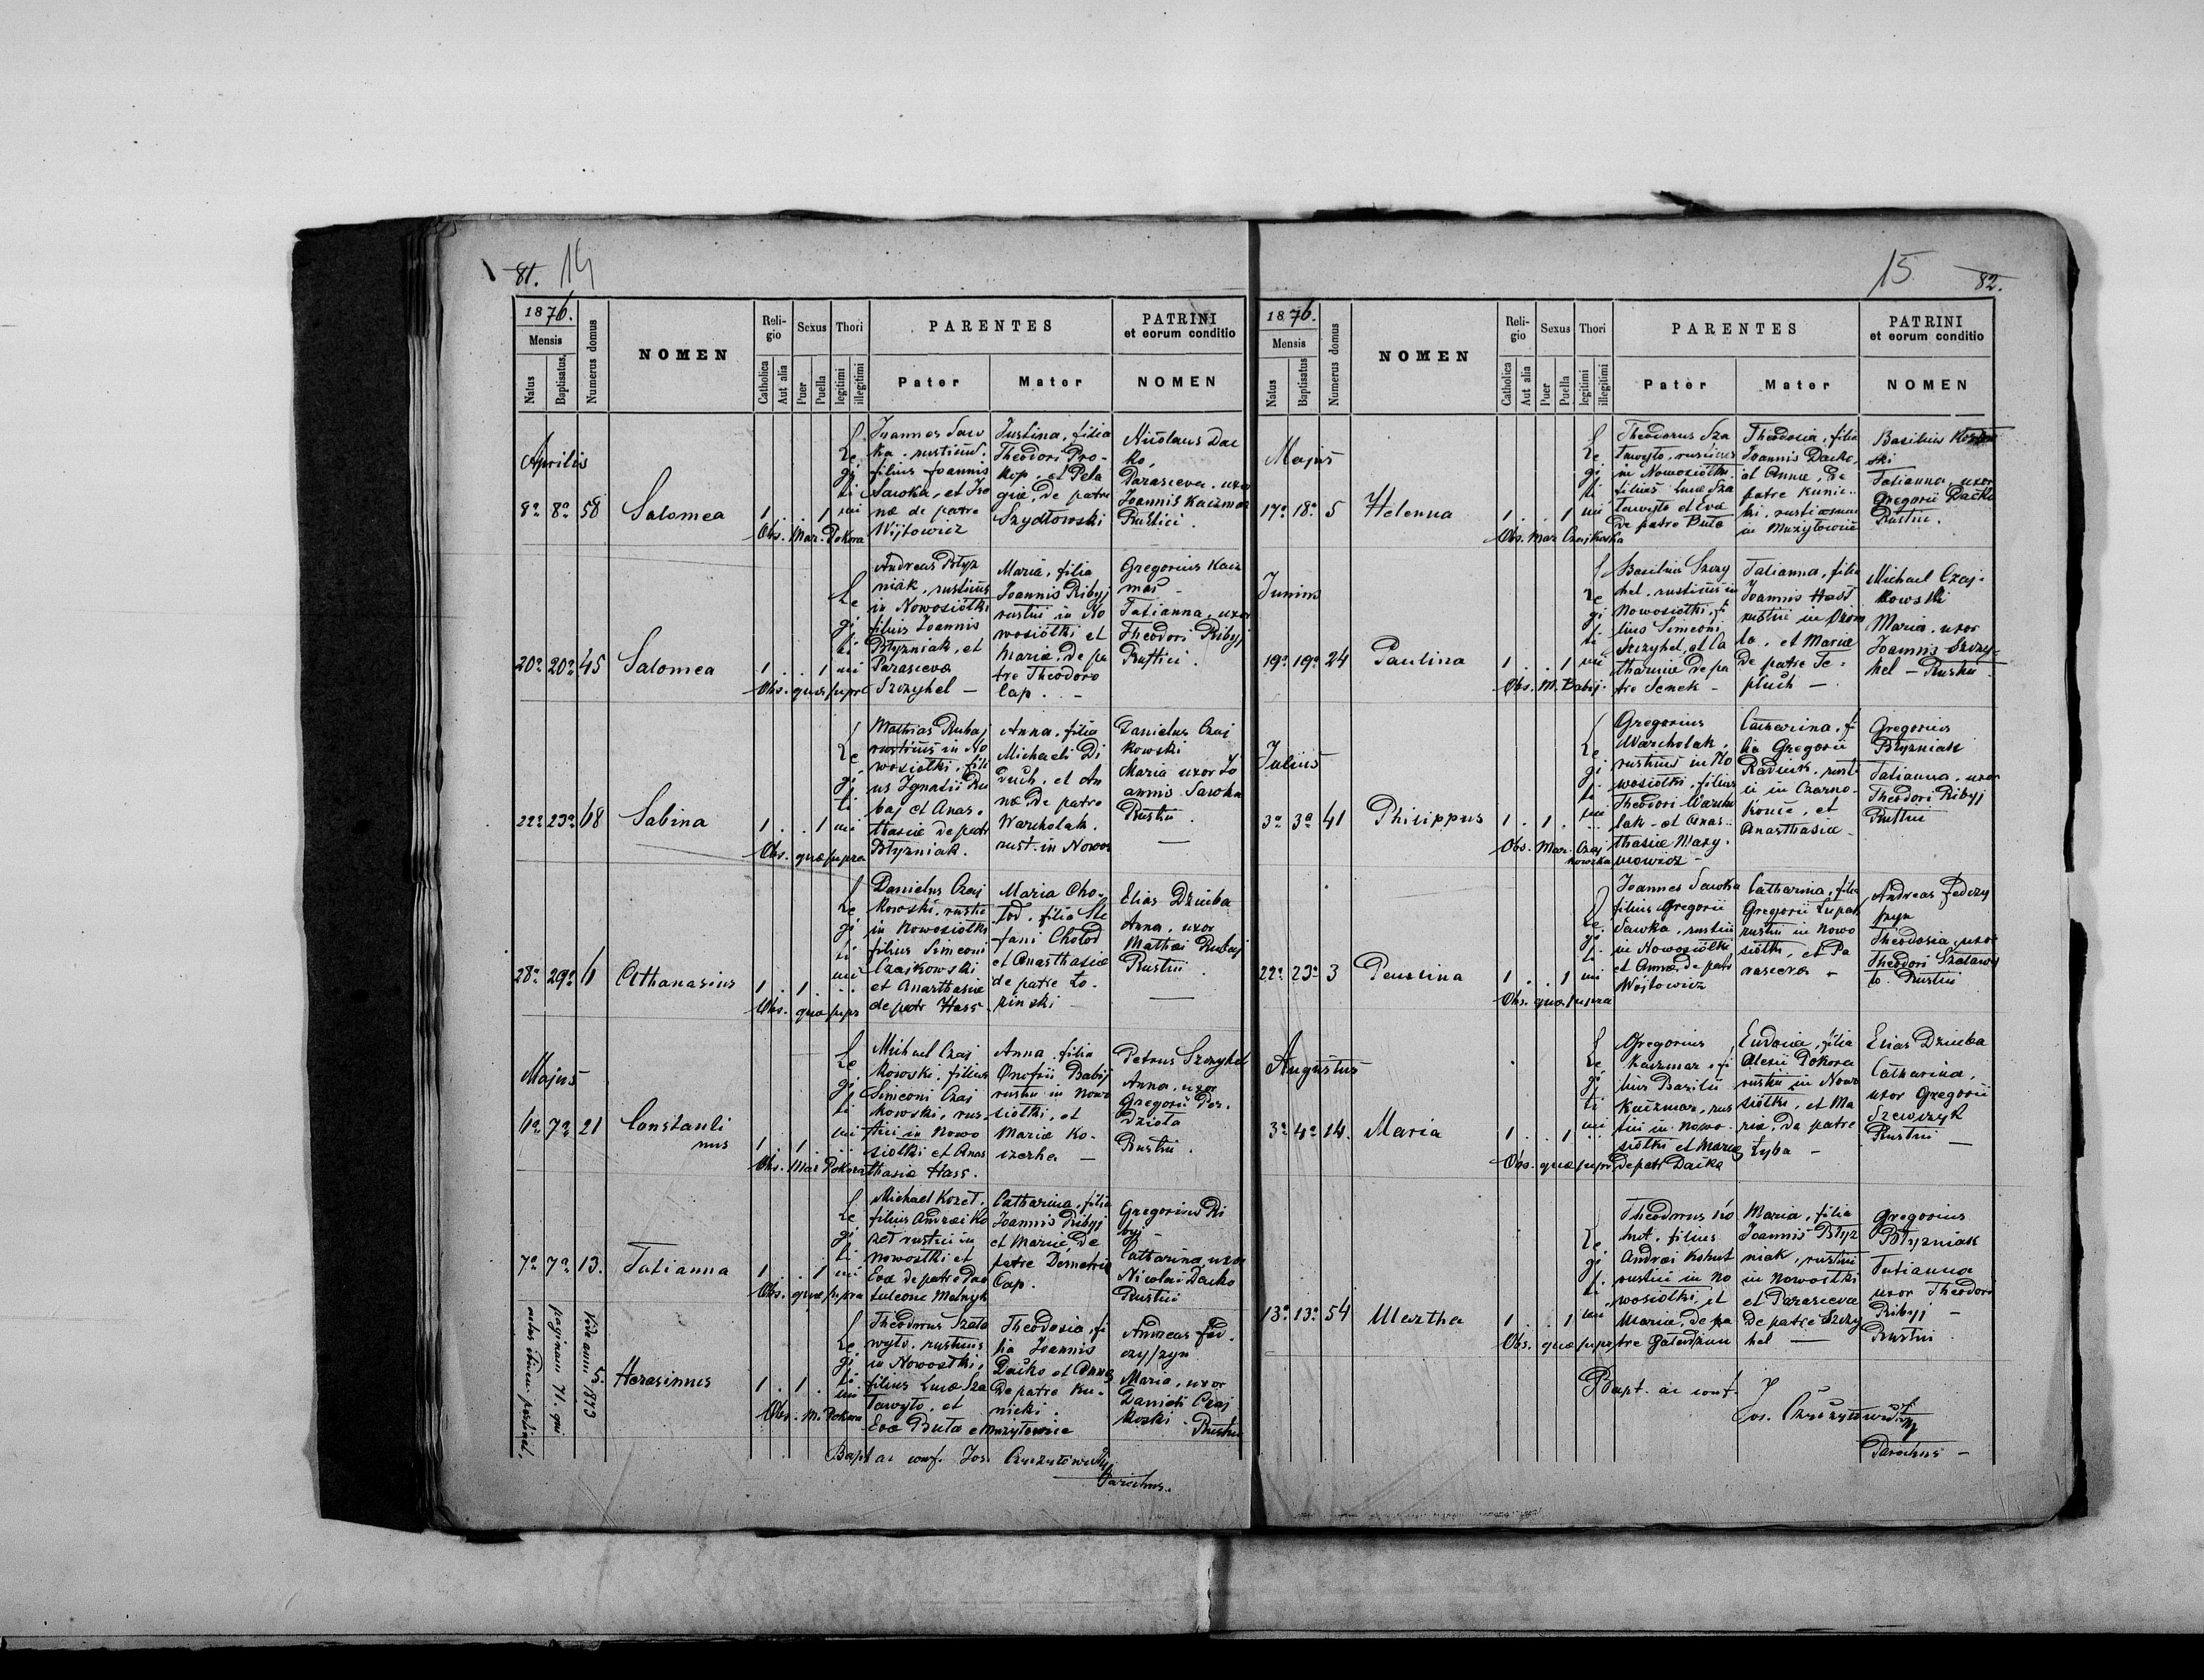 81. 14
1876.
Mensis
Natus
Baptisatus
Numerus domus
NOMEN
Religio
Catholica
Aut alia
Sexus
Puer
Puella
Thori
legitimi
illegitimi
PARENTES
Pater
Mater
PATRINI
et eorum conditio
NOMEN
Aprilis
8a 8a 58 Salomea 1 . . 1
Legitimi
Joannes Saw
ka. rusticus.
filius Joannis
Sawka, et Ire
næ de patre
Wijtowicz
Justina, filia
Theodori Pro-
kop, et Pela
giæ, de patre
Szydłowski
Nicolaus Dac
ko,
Parasceva. uxor
Joannis Kaczmar
Rustici.
Obs. Mar. Pokora
20a 20a 45 Salomea 1 . . 1
Legitimi
Andreas Błyz
niak, rusticus
in Nowosiółki
filius Joannis
Błyzniak, et
Parascevæ
Szczyhel -
Maria, filia
Joannis Ribyj
rustici in No
wosiółki et
Mariæ, de pa
tre Theodoro
Cap. -
Gregorius Kacz
mar -
Tatianna, uxor
Theodori Ribyj
Rustici.
Obs. quæ supra
22a 23a 68 Sabina 1 . . 1
Legitimi
Mathias Rubaj
rusticus in No
wosiółki, fili
us Ignatii Ru
baj et Anas.
thasiæ de patr
Błyzniak.
Anna, filia
Michaeli Di
duch, et An
næ de patre
Warcholak.
rust. in Nowos
Danielus Czaj
kowski
Maria uxor Jo
annis Sawka
Rustici.
Obs. quæ supra
28a 29a 6 Athanasius 1 . 1 .
Legitimi
Danielus Czaj
kowski, rustic
in Nowosiółki
filius Simeoni
Czajkowski
et Anasthasiæ
de patr Hass.
Maria Cho-
łod, filia Ste
fani Chołod
et Anasthasiæ
de patre Ło-
pinski
Elias Dziuba
Anna, uxor
Mathæi Rubaj
Rustici
Obs. quæ supr
Majus
6a 7a 21 Constanti
nus 1 . 1 .
Legitimi
Michael Czaj
kowski. filius
Simeoni Czaj
kowski, rus
tici in Nowo
siółki et Anas
thasiæ Hass.
Anna. filia
Onofrii Babij
rustici in Nowo
siółki, et
Mariæ Ko-
czerha -
Petrus Szczyhel
Anna, uxor
Gregorii
Rustici.
Obs. Mar Pokora
7a 7a 13. Tatianna 1 . . 1
Legitimi
Michael Kozeł.
filius Andræi Ko
zeł rustici in
Nowosłki et
Evæ de patre Pan
taleone Melnyk
Catharina, filia
Joannis Ribyj
et Mariæ, de
patre Demetrio
Cap.
Gregorius Ri
byj -
Catharina uxor
Nicolai Dacko
Rustici
Obs. quæ supra
Vide annum 1873
paginam 71. qui
natus ibidem pertinet.
Herasimus 1 . 1 .
Legitimi
Theodorus Szała
wyło. rusticus
in Nowosłki,
filius Lucæ Sza
ławyło, et
Evæ Buła e Mużyłowice
Theodosia, fi
lia Joannis
Dacko et Annæ
de patre Ku-
nicki.
Andreas Fed.
czyszyn
Maria, uxor
Danieli Czaj
kowski. Rustici
Obs. M. Pokora
Bapt ac conf. Jos.
Parochus.
15 82.
1876.
Mensis
Natus
Baptisatus
Numerus domus
NOMEN
Religio
Catholica
Aut alia
Sexus
Puer
Puella
Thori
legitimi
illegitimi
PARENTES
Pater
Mater
PATRINI
et eorum conditio
NOMEN
Majus
17a 18a 5 Helenna 1 . . 1
Legitimi
Theodorus Sza
ławyło, rusticus
in Nowosiółki.
filius Lucæ Sza
ławyło et Evæ
de patre Buła
Theodosia, filia
Joannis Dacko,
et Annæ, de
patre Kunic-
ki, rusticorum
in Mużyłowice
Basilius
ski
Tatianna, uxor
Gregorii Dacko
Rustici.
Obs. Mar Czajkowska
Junius
19a 19a 24 Paulina 1 . . 1
Legitimi
Basilius Szczy
hel. rusticus in
Nowosiółki, fi
lius Simeoni
Szczyhel, et Ca
tharinæ de pa
tre Senek -
Tatianna, filia
Joannis
rustici in
la, et Mariæ
de patre Te-
pluch -
Michael Czaj-
kowski
Maria, uxor
Joannis Szczy-
hel - Rustici
Obs. M. Babij.
Julius
3a 3a 41 Philippus 1 . 1 .
Legitimi
Gregorius
Warcholak,
rusticus in No
wosiółki, filius
Theodori Warcho
lak - et Anas-
thasiæ Maxy.
mowicz -
Catharina, fi
lia Gregorii
Radiuk, rusti
ci in Czarno-
końcé, et
Anasthasiæ -
Gregorius
Błyzniak
Tatianna. uxor
Theodori Ribyj
Rustici
Obs. Mar. Czaj
kowska
22a 23a 3 Paulina 1 . . 1
Legitimi
Joannes Sawka
filius Gregorii
Sawka, rustici
in Nowosiółki
et Annæ, de patr
Wojtowicz
Catharina, filia
Gregorii Łupak
rustici in Nowo
siółki, et Pa
rascevæ -
Andreas Fedczy
szyn
Theodosia, uxor
Theodori Szaławy
ło. Rustici
Obs. quæ supra
Augustus
3a 4a 14. Maria 1 . . 1
Legitimi
Gregorius
Kaczmar, fi
lius Basilii
Kaczmar, rus
tici in Nowo-
siółki et Mariæ
de patr Dacko
Eudocia, filia
Alexii Pokora
rustici in Nowo
siółki, et Ma
riæ, de patre
Łyba -
Elias Dziuba
Catharina,
uxor Gregorii
Szewczyk
Rustici -
Obs. quæ supr
13a 13a 54 Martha 1 . . 1
Legitimi
Theodorus Ko
hut. filius
Andræi Kohut
rustici in No
wosiółki, et
Mariæ, de pa
tre
Maria, filia
Joannis Błyz
niak, rustici
in Nowosłki
et Parascevæ
de patre Szczy
hel -
Gregorius
Błyzniak
Tatianna
uxor Theodori
Ribyj -
Rustici
Obs. quæ supr
Bapt. ac conf.
Jos.
Parochus -